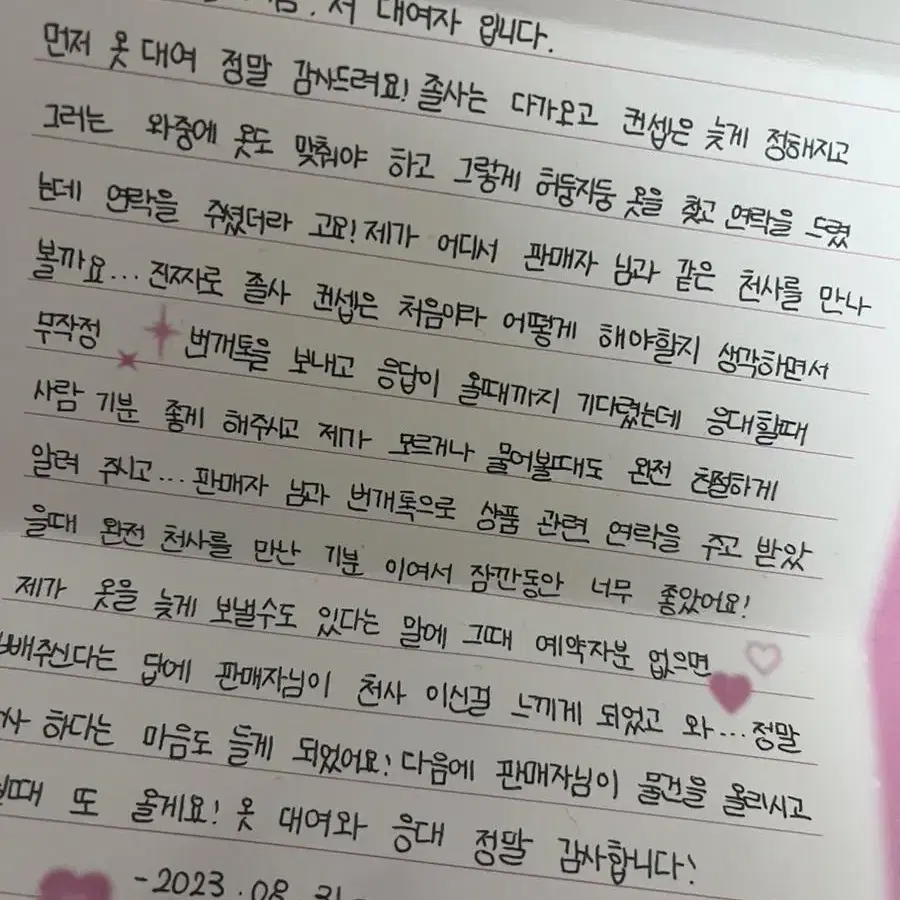 저 대여자 입니다.
먼저 옷 대여 정말 감사드려요! 졸사는 다가오고 컨셉은 늦게 정해지고
그러는 와중에 옷도 맞춰야 하고 그렇게 허둥지둥 옷을 찾고 연락을 드렸
는데 연락을 주셨더라 고요! 제가 어디서 판매자 님과 같은 천사를 만나
볼까요... 진짜로 졸사 컨셉은 처음이라 어떻게 해야할지 생각하면서
무작정 번개톡을 보내고 응답이 올때까지 기다렸는데 응대할때
사람 기분 좋게 해주시고 제가 모르거나 물어볼때도 완전 친절하게
알려 주시고... 판매자 님과 번개톡으로 상품 관련 연락을 주고 받았
을때 완전 천사를 만난 기분 이여서 잠깐동안 너무 좋았어요!
제가 옷을 늦게 보낼수도 있다는 말에 그때 예약자분 없으면
배주신다는 답에 판매자님이 천사 이신걸 느끼게 되었고 와... 정말
사 하다는 마음도 들게 되었어요! 다음에 판매자님이 물건을 올리시고
때 또 올게요! 옷 대여와 응대 정말 감사합니다!
-2023.08.31